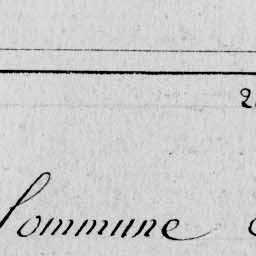 2
Commune